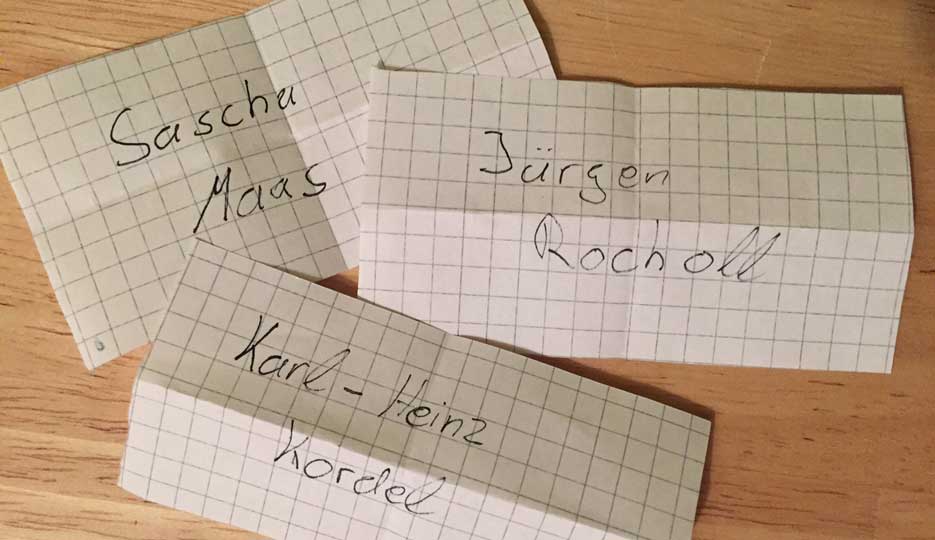 Sascha
Maas
Jürgen
Rocholl
Karl-Heinz
Kordel